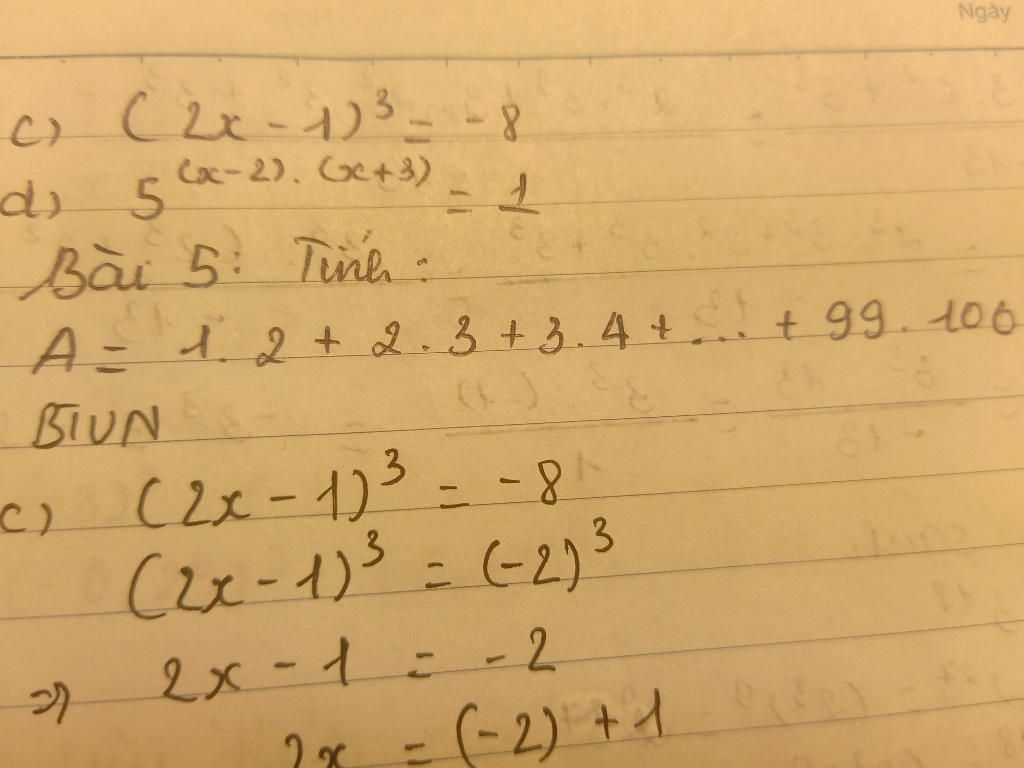 Ngày
c) (2x - 1)³ = -8
d) 5^(x-2).(x+3) = 1
Bài 5: Tính:
A = 1.2 + 2.3 + 3.4 + ... + 99.100
BTVN
c) (2x - 1)³ = -8
(2x - 1)³ = (-2)³
=> 2x - 1 = -2
2x = (-2) + 1